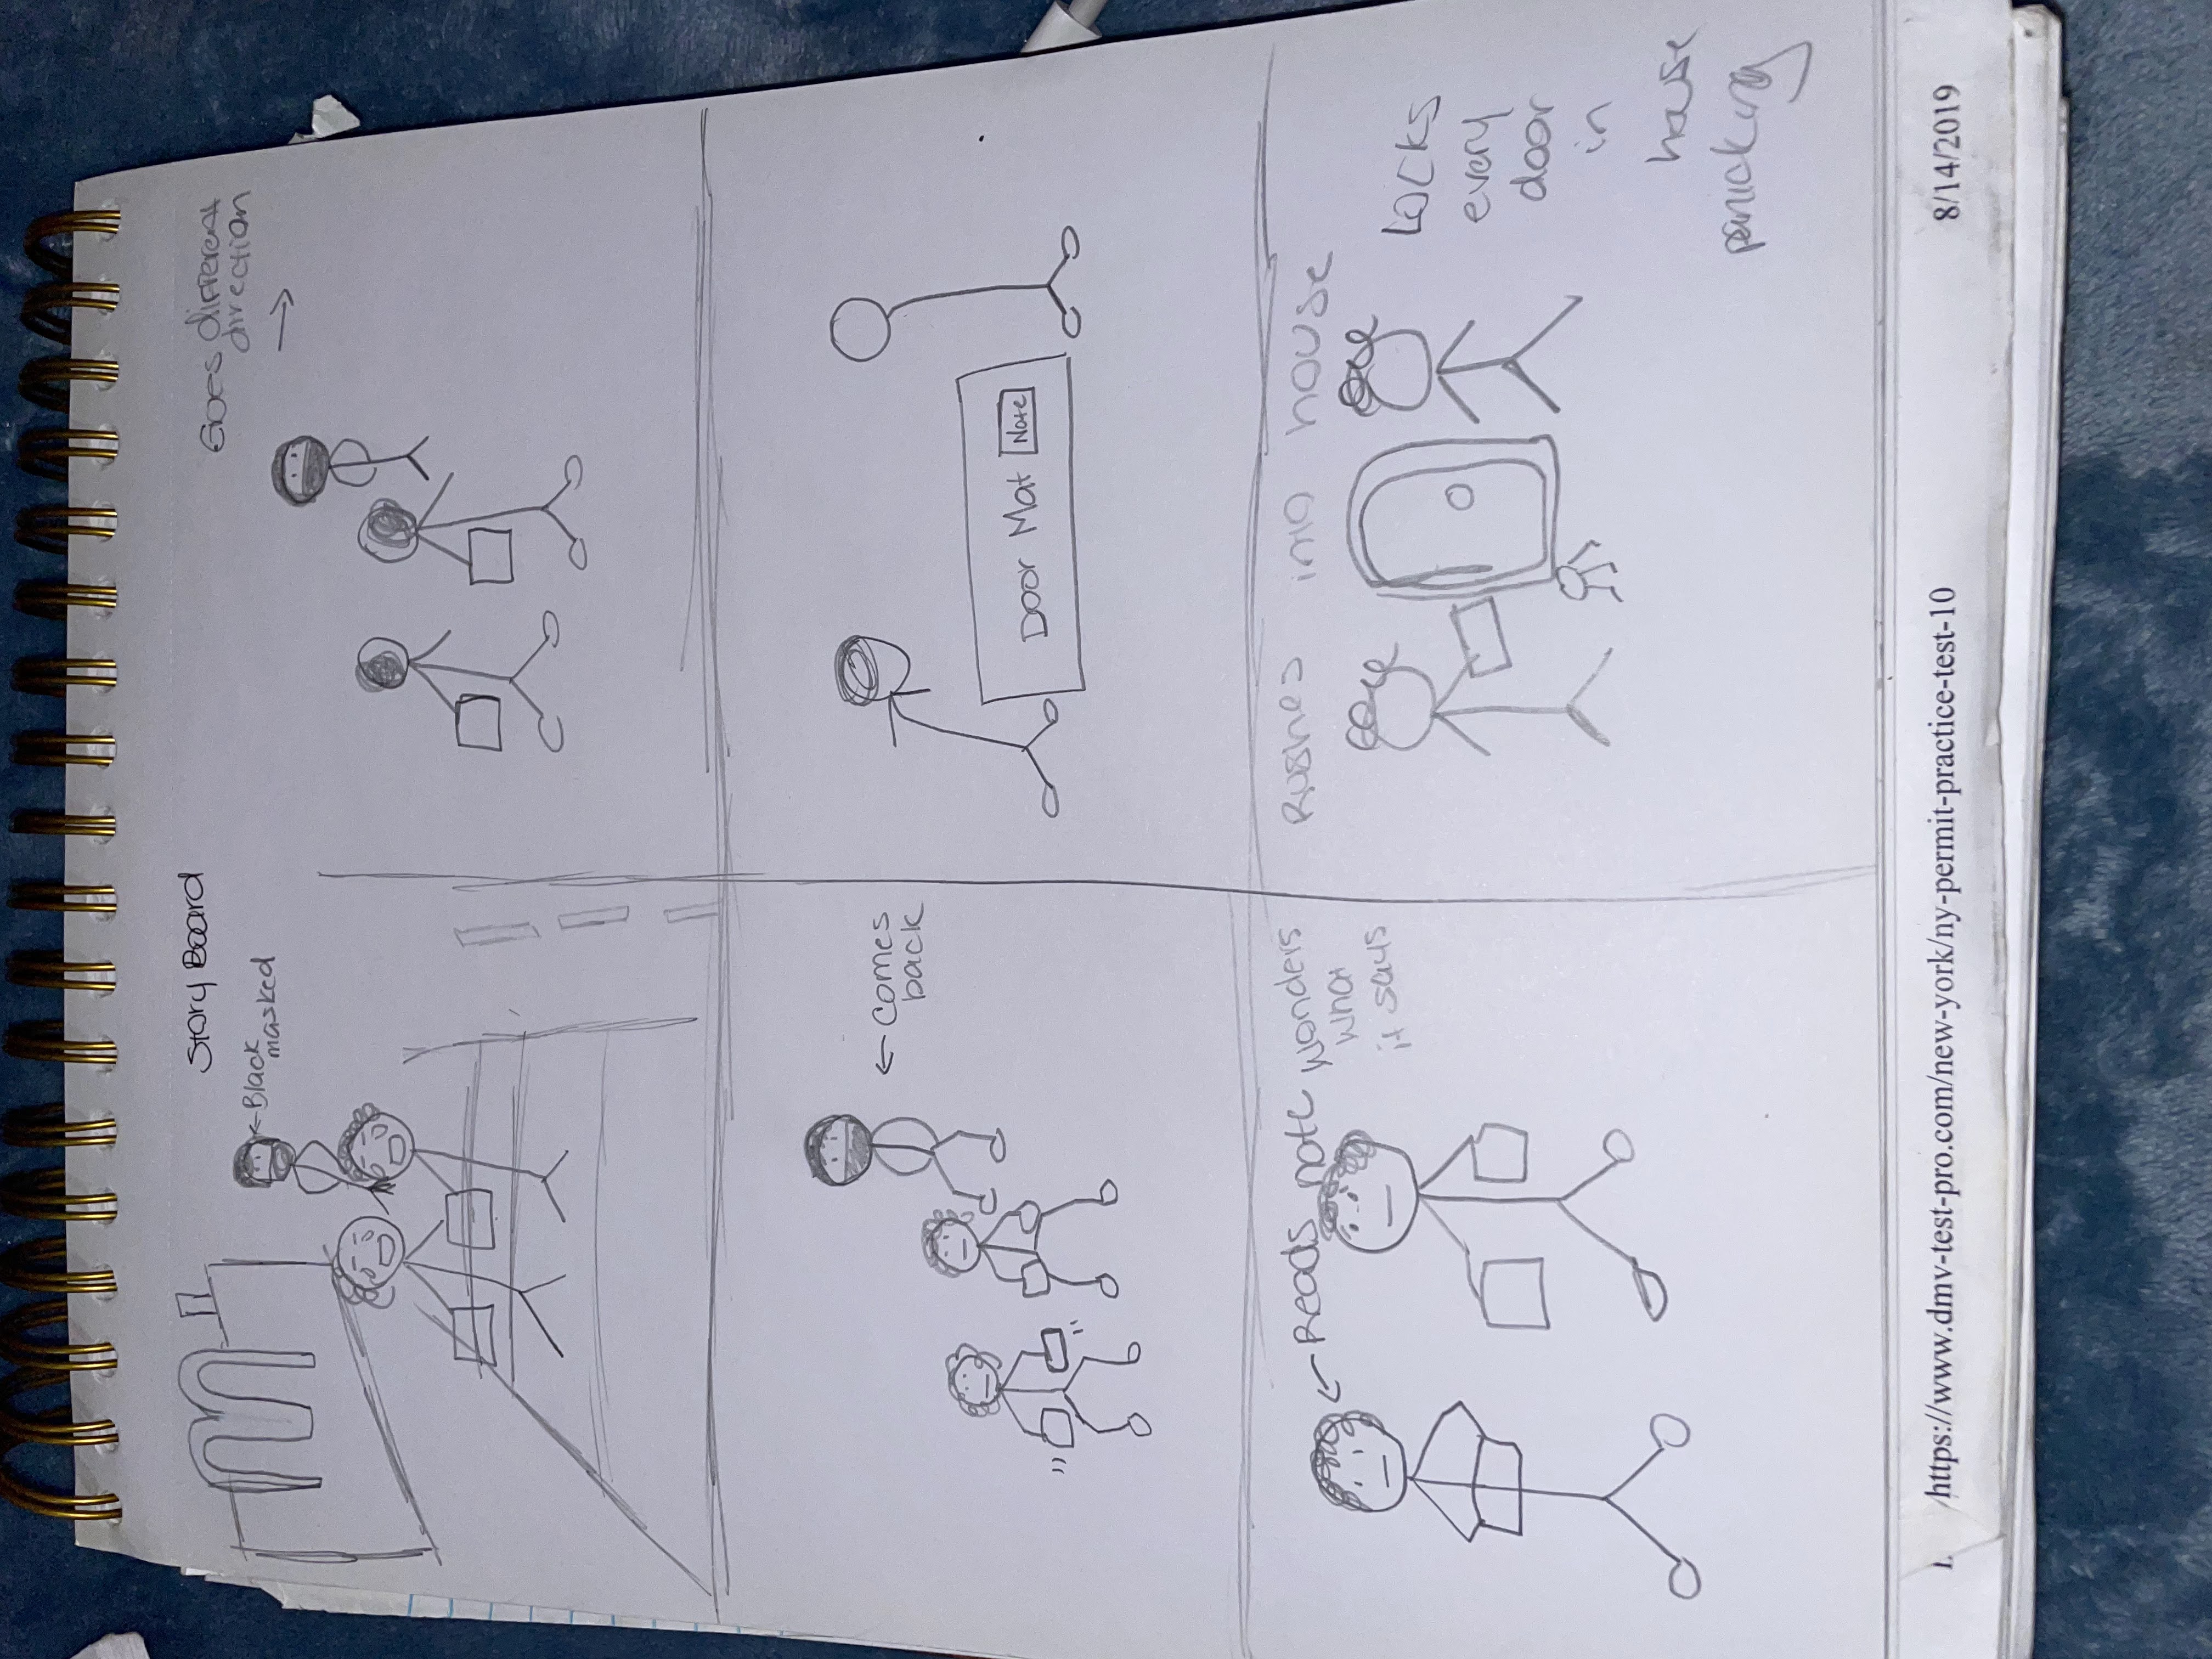 Story Board
M
←Black
masked
Goes different
direction
→
← comes
back
Door Mat Note
← Reads note wonders
what
it says
Rushes into house
Locks
every
door
in
house
panicking
https://www.dmv-test-pro.com/new-york/ny-permit-practice-test-10
8/14/2019